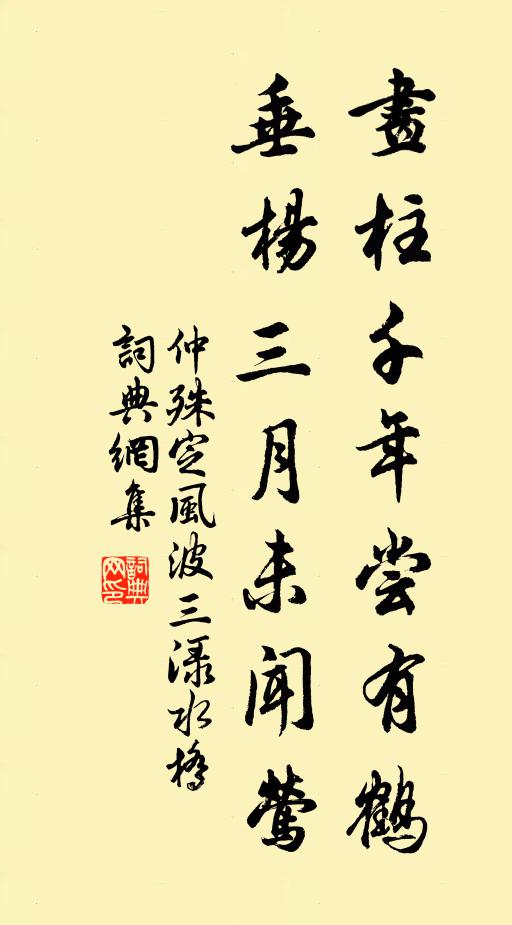 畫柱千年尝有鶴
垂楊三月未聞鶯
仲殊定風波三渌水橋
詞典網集
詞典網印